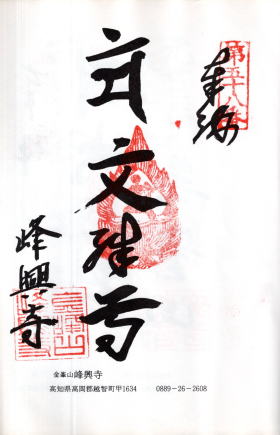 第五十八番
文殊
峰興寺
金峯山 峰興寺
高知県高岡郡越智町甲1634 0889-26-2608